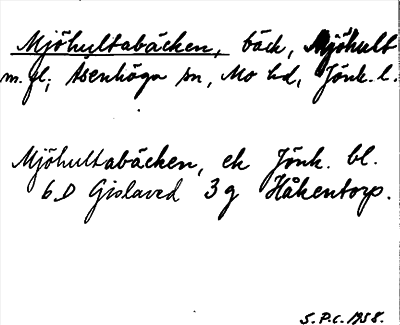 Mjöhultabäcken, bäck, Mjöhult
m.fl., Åsenhöga sn, Mo hd, Jönk. l.
Mjöhultabäcken, ek Jönk. bl.
6D Gislaved 3g Håkentorp.
S.P.C. 1958.